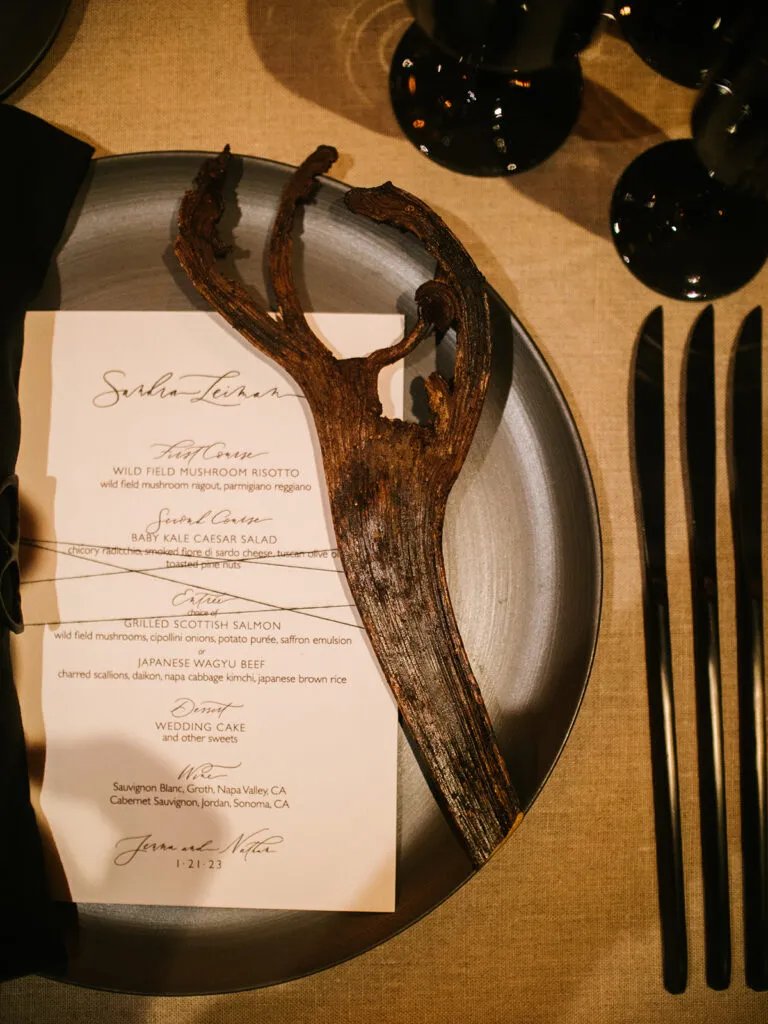 Sandra Leiman
First Course
WILD FIELD MUSHROOM RISOTTO
wild field mushroom ragout, parmigiano reggiano
Second Course
BABY KALE CAESAR SALAD
chicory radicchio, smoked fiore di sardo cheese, tuscan olive
toasted pine nuts
Entrée
choice of
GRILLED SCOTTISH SALMON
wild field mushrooms, cipollini onions, potato purée, saffron emulsion
or
JAPANESE WAGYU BEEF
charred scallions, daikon, napa cabbage kimchi, japanese brown rice
Dessert
WEDDING CAKE
and other sweets
Wine
Sauvignon Blanc, Groth, Napa Valley, CA
Cabernet Sauvignon, Jordan, Sonoma, CA
Jenna and
1·21·23